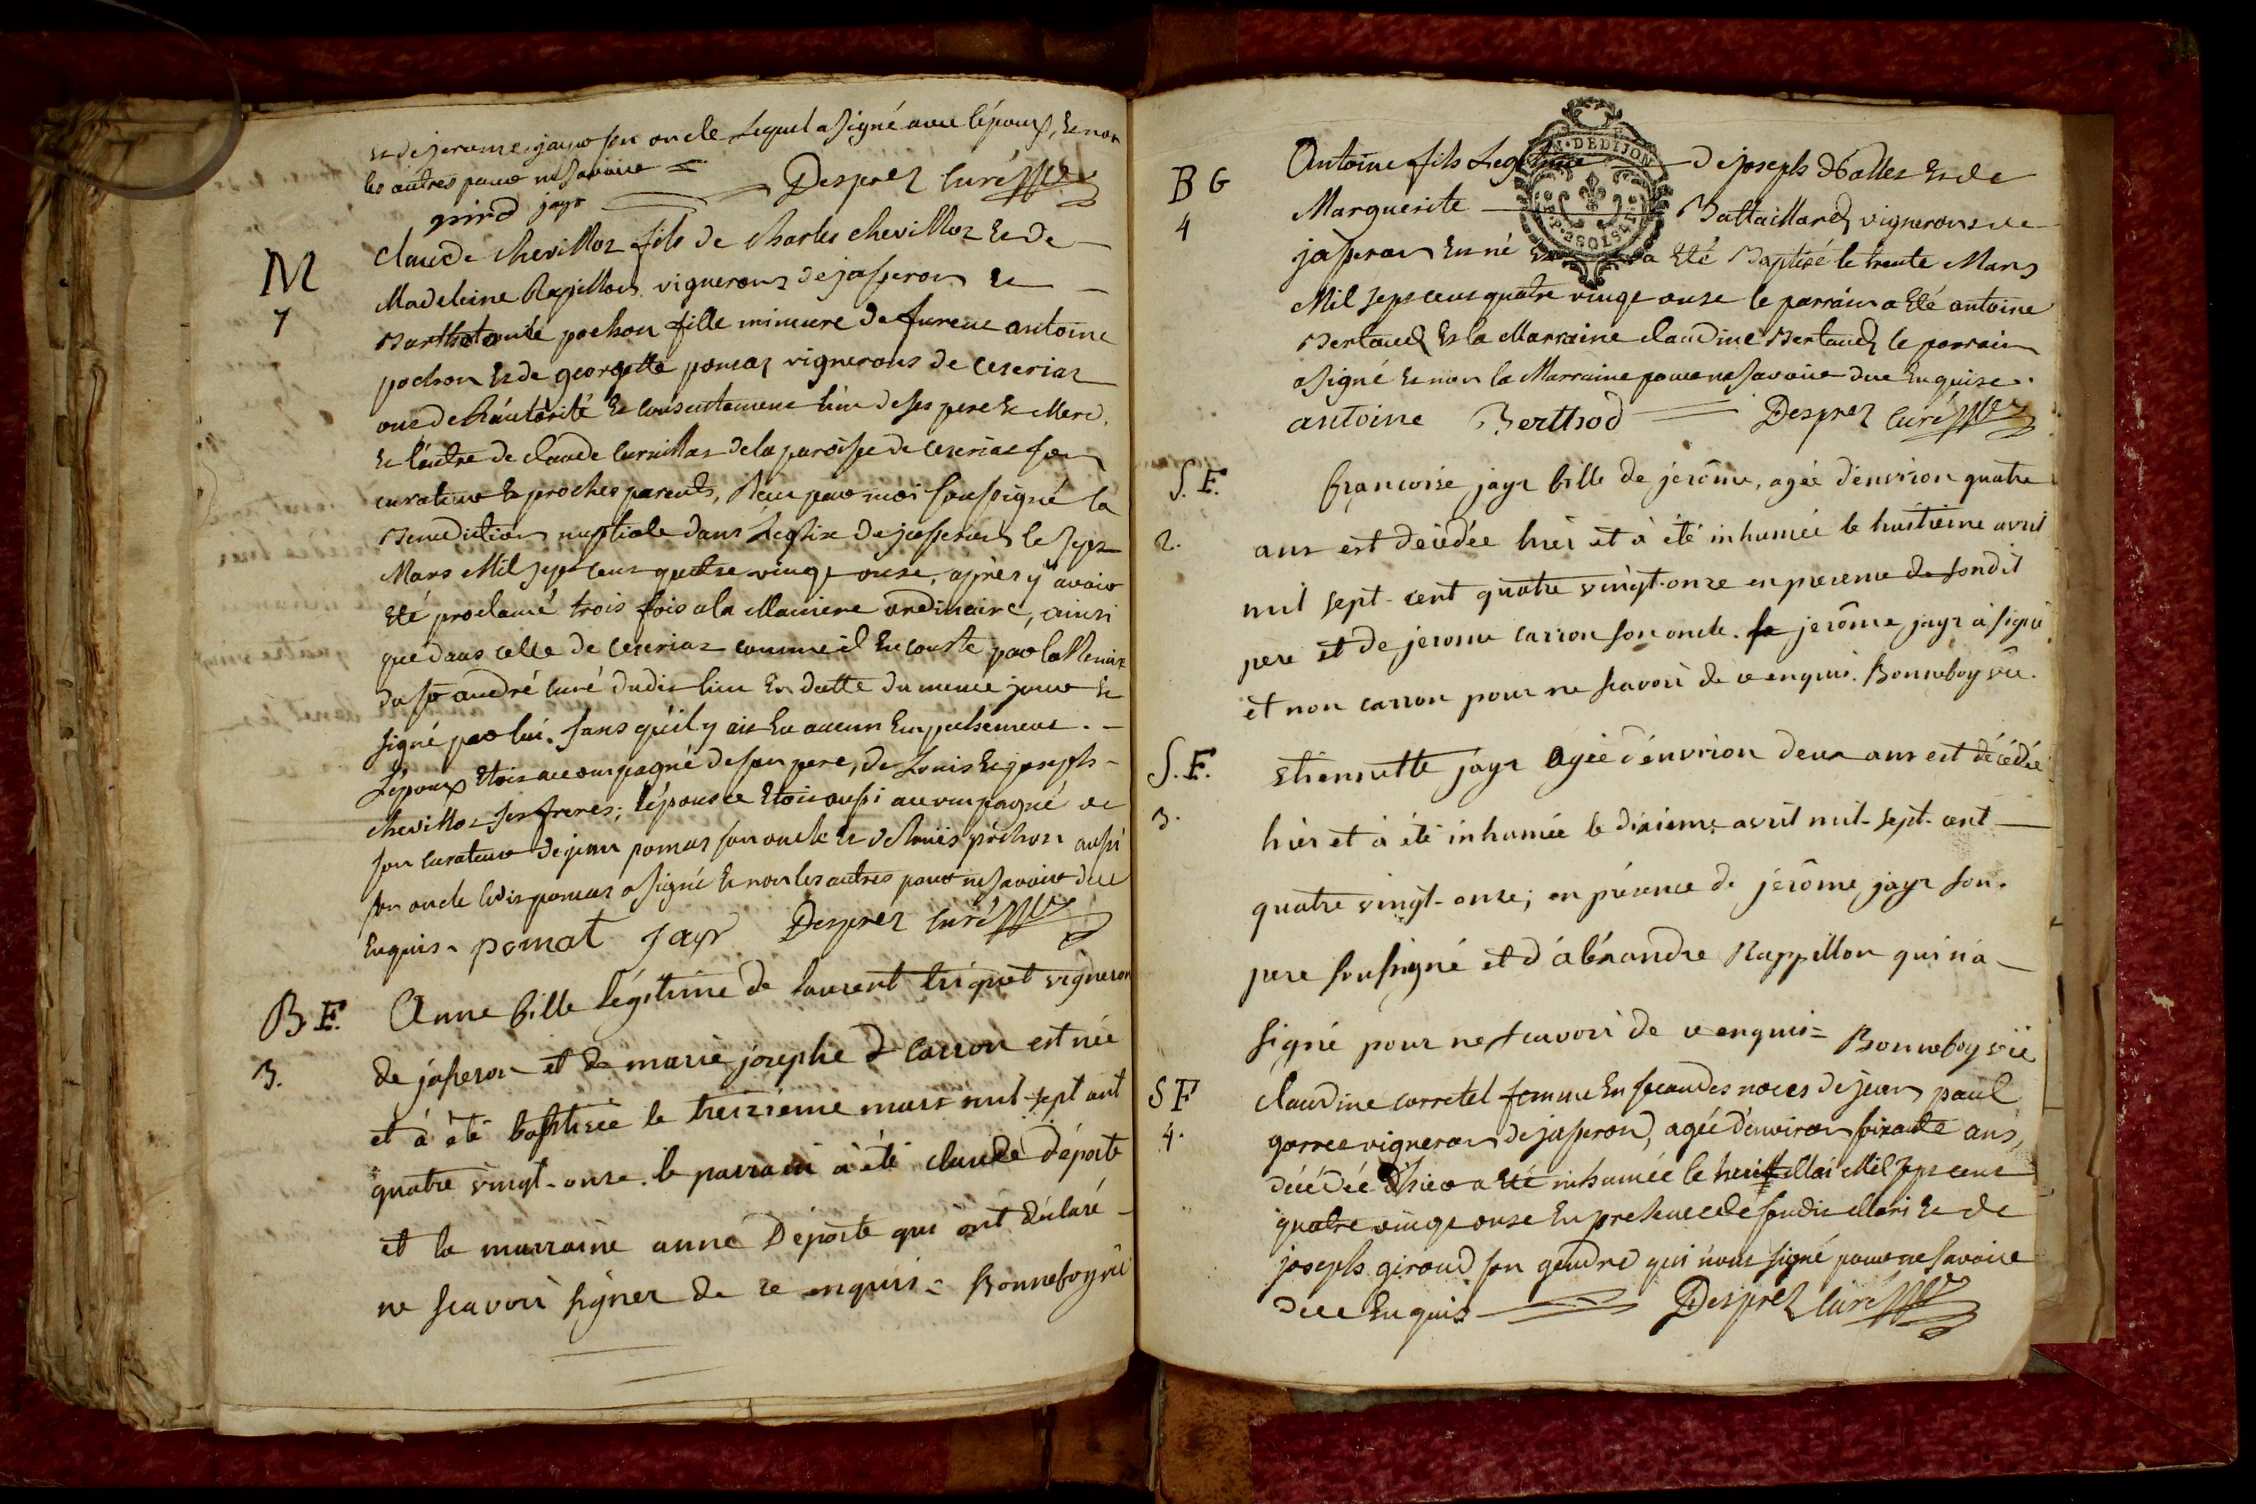 et de jerome jayr son oncle Lequel a signé avec l'époux, et non
les autres pour ne savoire =
Desprez curé
girod jayr
M
7
Claude chevilloz fils de charles chevilloz et de
Madeleine Rappillon vignerons de jasseron et
Bartholomée pochon fille mineure de furent antoine
pochon et de georgette pomaz vignerons de ceseriaz
ont de l'autorité et consentement l'un de ses pere et Mere,
et l'autre de Claude Curnillaz de la paroisse de ceseriaz son
curateur et proches parents, Reçu par moi soussigné la
Benediction nuptiale dans L'eglise de jasseron le sept
Mars Mil sept cent quatre vingt onze, après y avoir
été proclamé trois fois a la Maniere ordinaire, ainsi
que dans celle de ceseriaz comme il en conste par la Remise
du Sr andré curé dudit lieu en datte du meme jour et
signé par lui. sans qu'il y ait eu aucun Empechement. -
L'époux étoit accompagné de son pere, de Louis et joseph -
chevilloz ses freres; l'épouse étoit aussi accompagné de
son curateur de jean pomaz son oncle et de Louis pochon aussi
son oncle ledit pomaz a signé et non les autres pour ne savoire de ce
Enquis. pomat Jayr Desprez curé
B. F.
3.
Anne fille légitime de laurent triquet vigneron
de jasseron et de marie josephe Carron est née
et à été baptisée le treizieme mars mil sept cent
quatre vingt-onze. le parrain à été claude déporte
et la marraine anne Déporte qui ont déclaré -
ne scavoir signer de ce enquis = Bonneboy vic
B G
4
Antoine fils Legitime de joseph et de
Marguerite Battaillard vignerons de
jasseron est né a été Baptisé le trente Mars
Mil sept cent quatre vingt onze le parrain a été antoine
Bertaud et la Marraine claudine Bertaud le parrain
a signé et non la Marraine pour ne savoire de ce Enquise.
antoine Berthod Desprez curé
N. DE DIJON
S. F.
2.
françoise jayr fille de jérôme, agée d'environ quatre
ans est décédée hier et à été inhumée le huitieme avril
mil sept-cent quatre vingt-onze en presence de sondit
pere et de jerome carron son oncle. jerôme jayr à signé
et non carron pour ne scavoir de ce enquis. Bonneboy vic.
S. F.
3.
Etiennette jayr Agée d'environ deux ans est décédée
hier et à été inhumée le dixieme avril mil-sept-cent
quatre vingt-onze; en présence de jérôme jayr son
pere soussigné et d'aléxandre Rappillon qui n'a -
signé pour ne scavoir de ce enquis = Bonneboy vic
S F
4.
claudine corretel femme En secondes noces de jean paul
gorrec vigneron de jasseron, agée d'environ soixante ans,
décédée d'hier a été inhumée le huit Mai Mil sept cent
quatre vingt onze En presence de sondit Mari et de
joseph giroud son gendre qui n'ont signé pour ne savoire
de ce Enquis Desprez curé